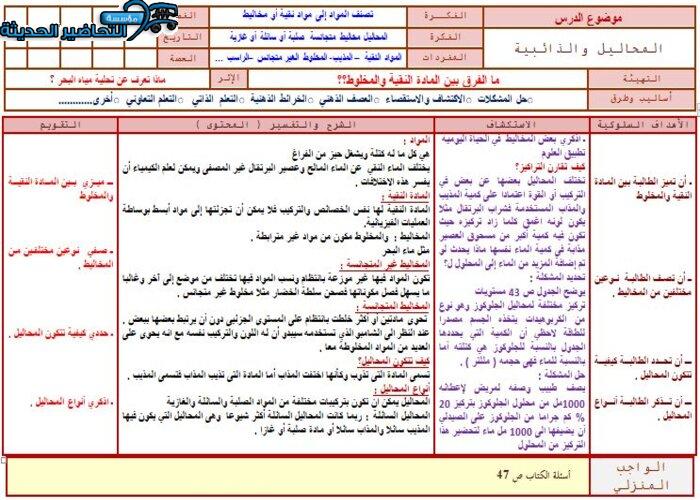 مؤسسة
التحاضير الحديثة
موضوع الدرس
المحاليل والذائبية
الفكرة
تصنف المواد إلى مواد نقية أو مخاليط
الفكرة
المحاليل مخاليط متجانسة صلبة أو سائلة أو غازية
التاريخ
المفردات
المواد النقية – المذيب- المخلوط الغير متجانس –الراسب ...
الحصة
التهيئة
ما الفرق بين المادة النقية والمخلوط؟؟
الإثر
ماذا تعرف عن تحلية مياه البحر ؟
أساليب وطرق
○حل المشكلات ○الاكتشاف والاستقصاء ○العصف الذهني ○الخرائط الذهنية ○التعلم الذاتي ○التعلم التعاوني ○أخرى............
الأهداف السلوكية
الاستكشاف
الشرح والتفسير ( المحتوى )
التقويم
ـ أن تميز الطالبة بين المادة
النقية والمخلوط
ـ أن تصف الطالبة نوعين
مختلفين من المخاليط .
ـ أن تحدد الطالبة كيفية
تتكون المحاليل .
ـ أن تذكر الطالبة أنواع
المحاليل .
ـ اذكري بعض المخاليط في الحياة اليوميه
تطبيق العلوم
كيف تقارن التراكيز؟
تختلف المحاليل بعضها عن بعض في
التركيب أو القوة اعتمادا على كمية المذيب
والمذاب المستخدمة فشراب البرتقال مثلا
يكون لونه اغمق كلما زاد تركيزه حيث
تكون فيه كمية أكبر من مسحوق العصير
مذابة في كمية الماء نفسها ماذا يحدث لو
تم إضافة المزيد من الماء إلى المحلول ل؟
تحديد المشكلة :
يوضح الجدول ص 43 مستويات
تركيز مختلفة لمحاليل الجلوكوز وهو نوع
من الكربوهيدات يتخذه الجسم مصدرا
للطاقة لاحظي أن الكمية التي يحددها
الجدول بالنسبة للجلوكوز هي كتلته أما
بالنسبة للماء فهي حجمه ( مللتر ) .
حل المشكلة :
يصف طبيب وصفه لمريض لإعطائه
1000مل من محلول الجلوكوز بتركيز 20
% كم جراما من الجلوكوز على الصيدلي
أن يضيفها الى 1000 مل ماء لتحضير هذا
التركيز من المحلول
المواد :
هي كل ما له كتلة ويشغل حيز من الفراغ
يختلف الماء النقي عن الماء المالح وعصير البرتقال غير المصفى ويمكن لعلم الكيمياء أن
يفسر هذه الاختلافات .
المادة النقية :
المادة النقية لها نفس الخصائص والتركيب فلا يمكن أن تجزئتها إلى مواد أبسط بوساطة
العمليات الفيزيائية.
المخاليط : والمخلوط مكون من مواد غير مترابطة .
مثل ماء البحر
المخاليط غير المتجانسة :
تكون المواد فيها غير موزعة بانتظام ونسب المواد فيها تختلف من موضع إلى آخر وغالبا
ما يسهل فصل مكوناتها فصحن سلطة الخضار مثلا مخلوط غير متجانس .
المخاليط المتجانسة :
تحوى مادتين أو أكثر خلطت بانتظام على المستوى الجزيئي دون أن يرتبط بعضها ببعض .
عند النظر الى الشامبو الذي تستخدمه سيبدو أن له اللون والتركيب نفسه مع انه يحوى على
العديد من المواد المخلوطة معا .
كيف تتكون المحاليل؟
تسمى المادة التي تذوب وكأنها اختفت المذاب أما المادة التى تذيب المذاب فتسمى المذيب .
أنواع المحاليل :
المحاليل يمكن أن تكون بتركيبات مختلفة من المواد الصلبة والسائلة والغازية
المحاليل السائلة : ربما كانت المحاليل السائلة أكثر شيوعا وهى المحاليل التي يكون فيها
المذيب سائلا والمذاب سائلا أو مادة صلبة أو غازا .
ــ ميزي بين المادة النقية
والمخلوط
ـ صفي نوعين مختلفين من
المخاليط .
ـ حددي كيفية تتكون المحاليل .
ـ اذكري أنواع المحاليل .
الواجب
المنزلي
أسئلة الكتاب ص 47